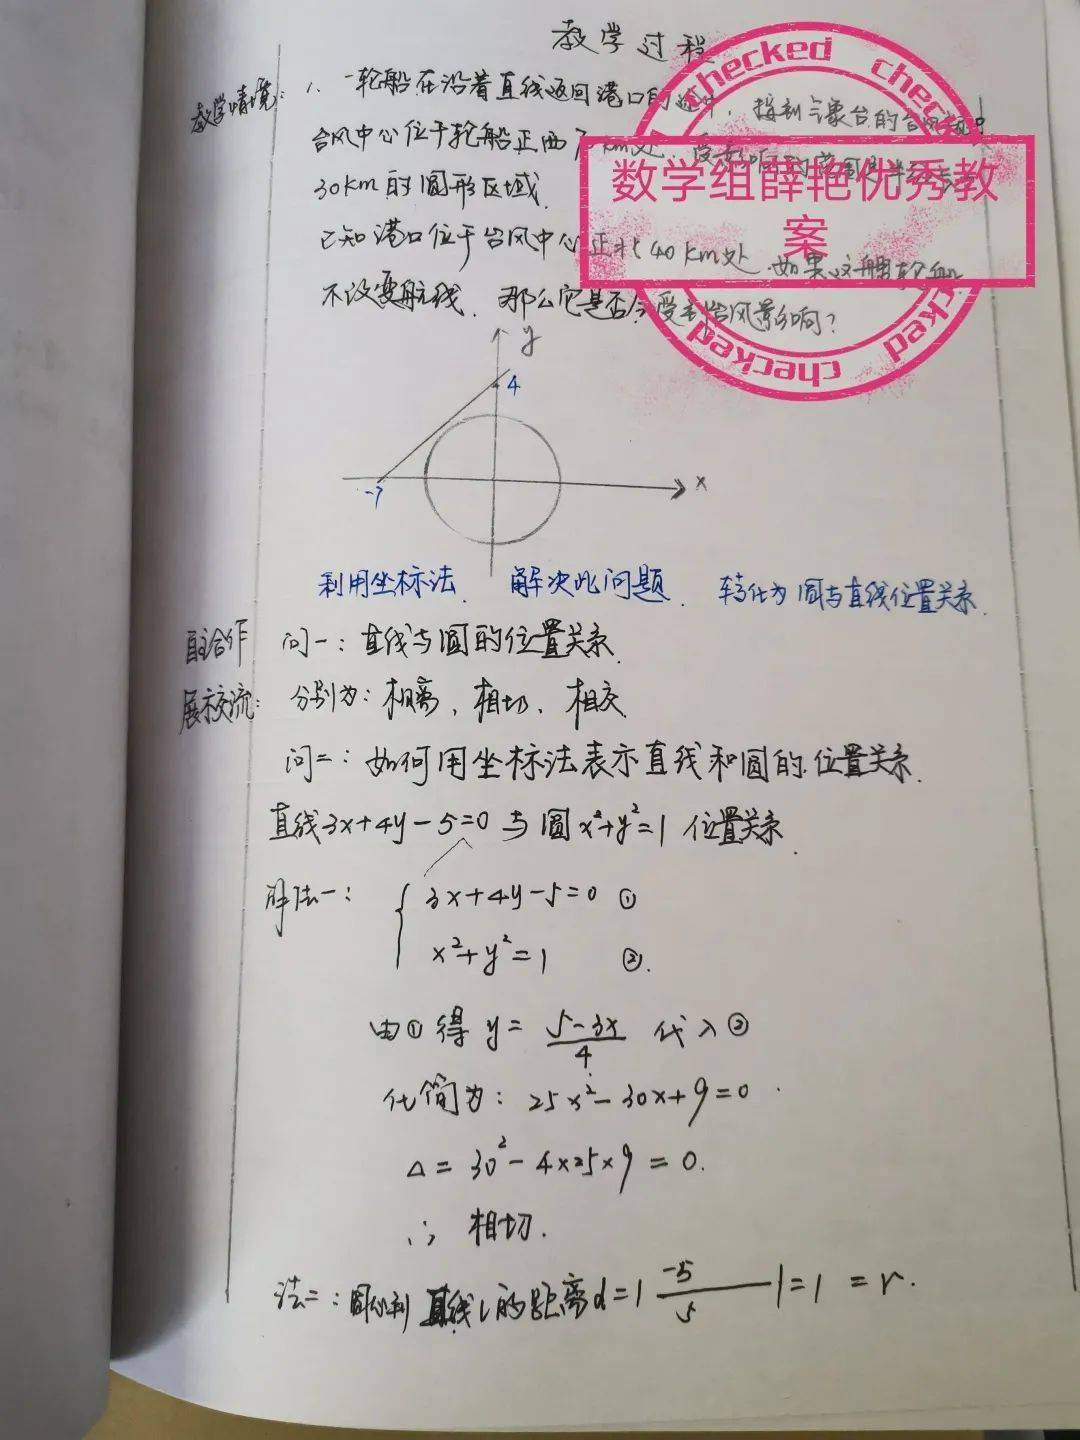 教学过程
教学情境: 1. 一轮船在沿着直线返回港口的途中, 接到气象台的台风预
台风中心位于轮船正西 km处, 受影响的范围是半径长
30km的圆形区域.
已知港口位于台风中心正北40km处. 如果这艘轮船
不改变航线. 那么它是否会受到台风影响?
checked checked checked checked
数学组薛艳优秀教
案
y
4
-7
x
利用坐标法. 解决此问题. 转化为圆与直线位置关系.
自主合作 问一: 直线与圆的位置关系.
展示交流: 分别为: 相离, 相切, 相交.
问二: 如何用坐标法表示直线和圆的位置关系.
直线3x+4y-5=0与圆x²+y²=1位置关系.
解法一: { 3x+4y-5=0 ①
x²+y²=1 ②.
由①得 y= (5-3x)/4 代入②
化简为: 25x²-30x+9=0.
Δ=30²-4×25×9=0.
∴ 相切.
法二: 圆心到直线l的距离d=| -5/5 |=1=r.